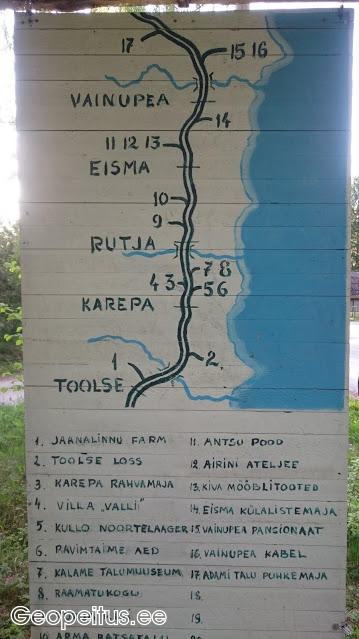 17
15 16
VAINUPEA
14
11 12 13
EISMA
10
9
RUTJA
7 8
4 3
5 6
KAREPA
2.
1
TOOLSE
1. JAANALINNU FARM
2. TOOLSE LOSS
3. KAREPA RAHVAMAJA
4. VILLA „VALLI"
5 KULLO NOORTELAAGER
6. RAVIMTAIME AED
7. KALAME TALUMUUSEUM
8. RAAMATUKOGU
10
11. ANTSU POOD
12. AIRINI ATELJEE
13. KIVA MÖÖBLITOOTED
14. EISMA KÜLALISTEMAJA
15. VAINUPEA PANSIONAAT
16. VAINUPEA KABEL
17. ADAMI TALU PUHKEMAJA
18.
19.
Geopeitus.ee